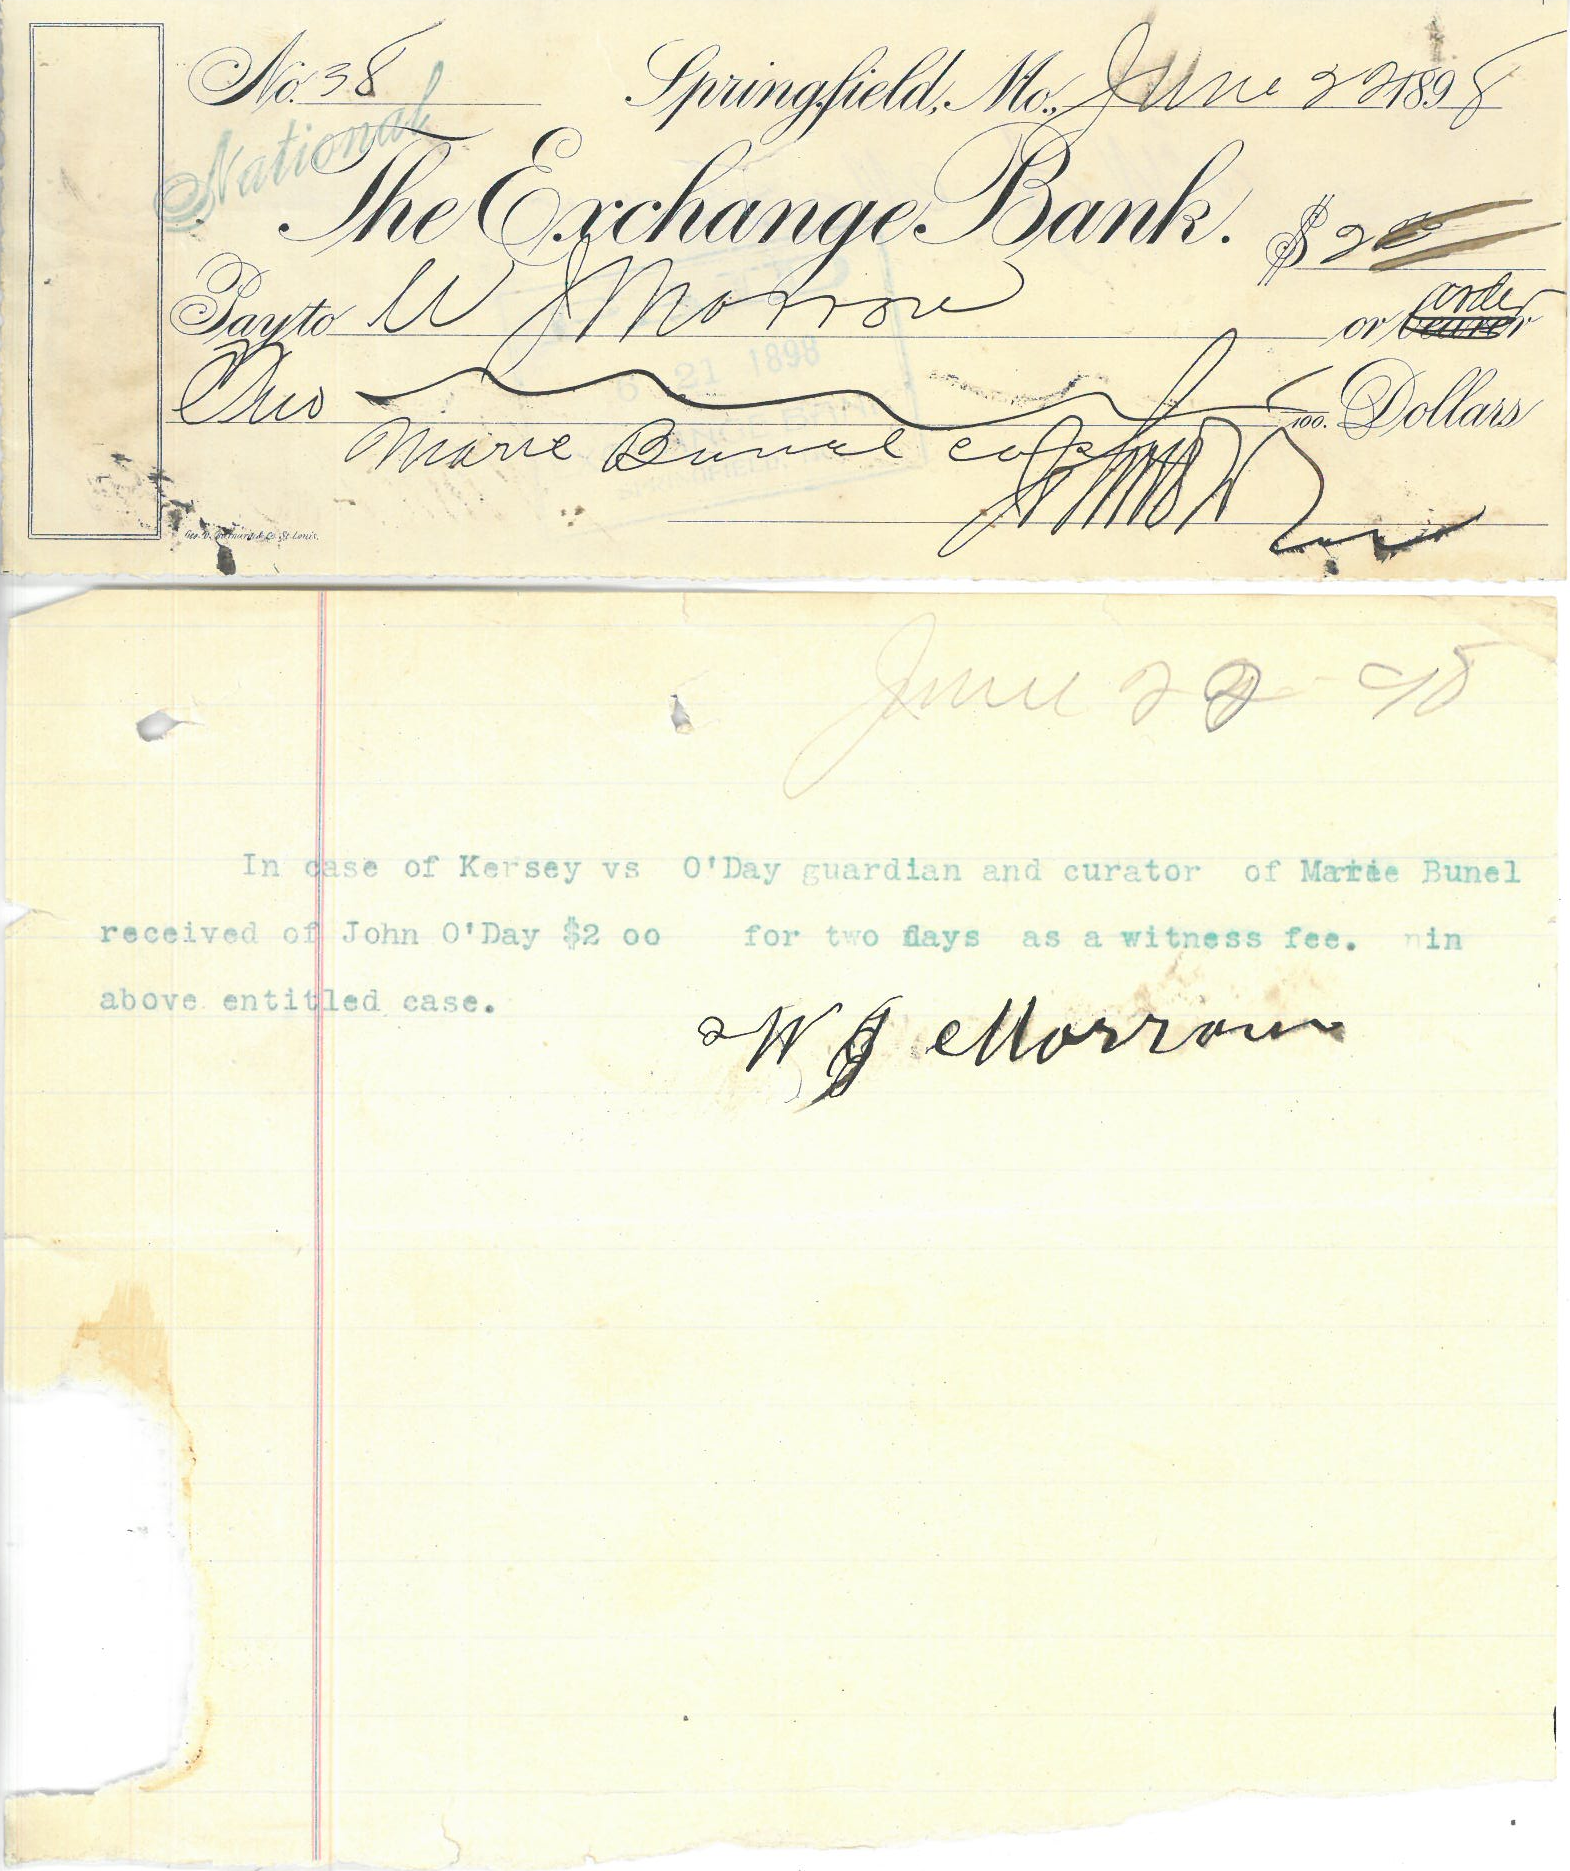 No. 38 Springfield, Mo., June 22 1898
National
The Exchange Bank. $2 00
Pay to W J Morrow or bearer order
Two /100. Dollars
6 21 1898
Marie Bunel
St. Louis.
June 22 - 98
In case of Kersey vs O'Day guardian and curator of Marie Bunel
received of John O'Day $2 oo for two days as a witness fee. nin
above entitled case.
W J Morrow